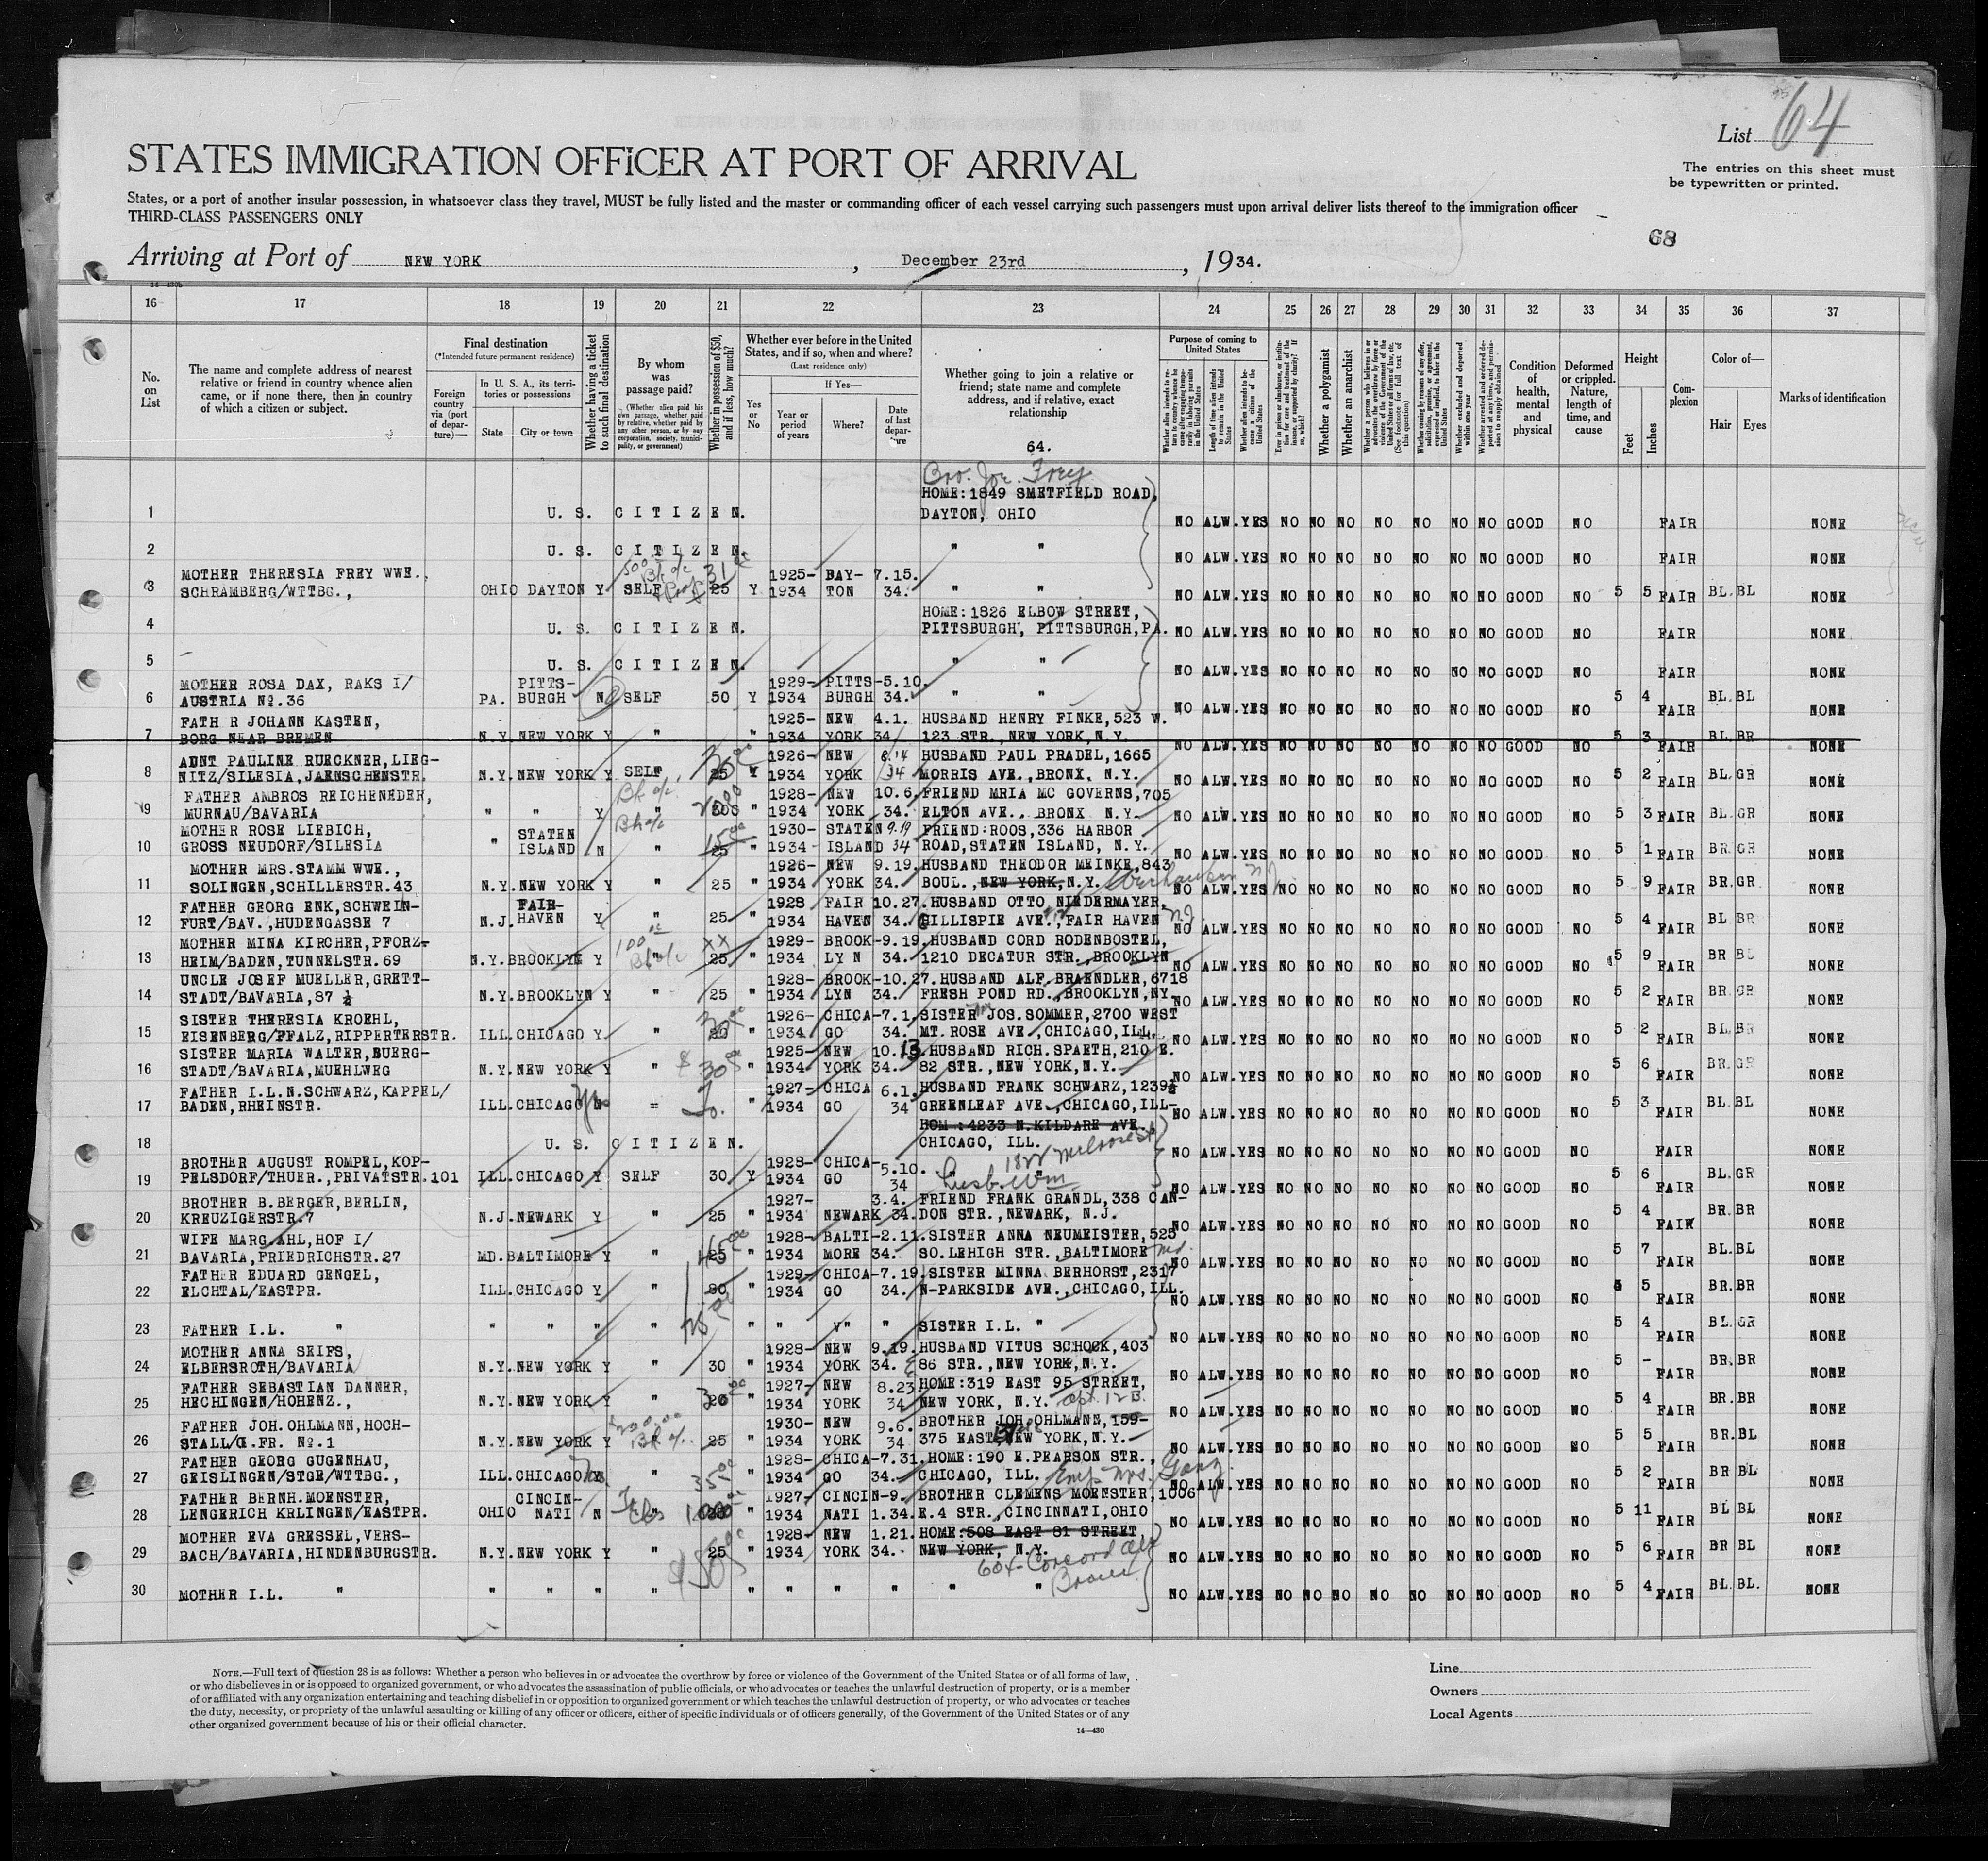 List 64
STATES IMMIGRATION OFFICER AT PORT OF ARRIVAL
The entries on this sheet must
be typewritten or printed.
States, or a port of another insular possession, in whatsoever class they travel, MUST be fully listed and the master or commanding officer of each vessel carrying such passengers must upon arrival deliver lists thereof to the immigration officer
THIRD-CLASS PASSENGERS ONLY
68
Arriving at Port of NEW YORK, December 23rd, 1934.
16 17 18 19 20 21 22 23 24 25 26 27 28 29 30 31 32 33 34 35 36 37
No. on List
The name and complete address of nearest
relative or friend in country whence alien
came, or if none there, then in country
of which a citizen or subject.
Final destination
(*Intended future permanent residence)
Foreign country via (port of departure)—
In U. S. A., its territories or possessions
State City or town
Whether having a ticket to such final destination
By whom was passage paid?
(Whether alien paid his own passage, whether paid by relative, whether paid by any other person, or by any corporation, society, municipality, or government)
Whether in possession of $50, and if less, how much?
Whether ever before in the United
States, and if so, when and where?
(Last residence only)
Yes or No
If Yes—
Year or period of years
Where?
Date of last departure
Whether going to join a relative or
friend; state name and complete
address, and if relative, exact
relationship
64.
Purpose of coming to United States
Whether a polygamist
Whether an anarchist
Condition of health, mental and physical
Deformed or crippled. Nature, length of time, and cause
Height
Feet Inches
Complexion
Color of—
Hair Eyes
Marks of identification
Bro. Joe. Frey
HOME:1849 SMETFIELD ROAD,
1 U. S. CITIZEN. DAYTON, OHIO NO ALW.YES NO NO NO NO NO NO NO GOOD NO FAIR NONE
2 U. S. CITIZEN. " " NO ALW.YES NO NO NO NO NO NO NO GOOD NO FAIR NONE
MOTHER THERESIA FREY WWE., 1925- DAY- 7.15.
3 SCHRAMBERG/WTTBG., OHIO DAYTON Y SELF 25 Y 1934 TON 34. " " NO ALW.YES NO NO NO NO NO NO NO GOOD NO 5 5 FAIR BL.BL NONE
HOME:1826 ELBOW STREET,
4 U. S. CITIZEN. PITTSBURGH, PITTSBURGH,PA. NO ALW.YES NO NO NO NO NO NO NO GOOD NO FAIR NONE
5 U. S. CITIZEN. " " NO ALW.YES NO NO NO NO NO NO NO GOOD NO FAIR NONE
MOTHER ROSA DAX, RAKS I/ PITTS- 1929- PITTS-5.10.
6 AUSTRIA No.36 PA. BURGH NO SELF 50 Y 1934 BURGH 34. " " NO ALW.YES NO NO NO NO NO NO NO GOOD NO 5 4 FAIR BL.BL NONE
FATH R JOHANN KASTEN, 1925- NEW 4.1. HUSBAND HENRY FINKE,523 W.
7 BORG NEAR BREMEN N.Y. NEW YORK Y " " 1934 YORK 34. 123 STR.,NEW YORK,N.Y. NO ALW.YES NO NO NO NO NO NO NO GOOD NO 5 3 FAIR BL.BR NONE
AUNT PAULINE RUECKNER,LIEG- 1926- NEW 8.14 HUSBAND PAUL PRADEL,1665
8 NITZ/SILESIA,JAENSCHENSTR. N.Y. NEW YORK Y SELF 25 Y 1934 YORK 34 MORRIS AVE.,BRONX, N.Y. NO ALW.YES NO NO NO NO NO NO NO GOOD NO 5 2 FAIR BL.GR NONE
FATHER AMBROS REICHENEDER, 1928- NEW 10.6. FRIEND MRIA MC GOVERNS,705
9 MURNAU/BAVARIA " " Y " " 1934 YORK 34. ELTON AVE., BRONX N.Y. NO ALW.YES NO NO NO NO NO NO NO GOOD NO 5 3 FAIR BL.GR NONE
MOTHER ROSE LIEBICH, STATEN 15.00 1930- STATEN 9.19 FRIEND:ROOS,336 HARBOR
10 GROSS NEUDORF/SILESIA " ISLAND N " 25 " 1934 ISLAND 34 ROAD,STATEN ISLAND, N.Y. NO ALW.YES NO NO NO NO NO NO NO GOOD NO 5 1 FAIR BR.GR NONE
MOTHER MRS.STAMM WWE., 1926- NEW 9.19. HUSBAND THEODOR MEINKE,843
11 SOLINGEN,SCHILLERSTR.43 N.Y. NEW YORK Y " 25 " 1934 YORK 34. BOUL.,NEW YORK,N.Y. NO ALW.YES NO NO NO NO NO NO NO GOOD NO 5 9 FAIR BR.GR NONE
FATHER GEORG ENK,SCHWEIN- FAIR- 1928 FAIR 10.27. HUSBAND OTTO NIEDERMAYER,
12 FURT/BAV.,HUDENGASSE 7 N.J. HAVEN Y " 25 " 1934 HAVEN 34. GILLISPIE AVE.,FAIR HAVEN N.J. NO ALW.YES NO NO NO NO NO NO NO GOOD NO 5 4 FAIR BL BR NONE
MOTHER MINA KIRCHER,PFORZ- 100 XX 1929- BROOK-9.19. HUSBAND CORD RODENBOSTEL,
13 HEIM/BADEN,TUNNELSTR.69 N.Y.BROOKLYN Y " 25 " 1934 LY N 34. 1210 DECATUR STR.,BROOKLYN NO ALW.YES NO NO NO NO NO NO NO GOOD NO 5 9 FAIR BR NONE
UNCLE JOSEF MUELLER,GRETT- 1928- BROOK-10.27. HUSBAND ALF.BRAENDLER,6718
14 STADT/BAVARIA,87 ½ N.Y.BROOKLYN Y " 25 " 1934 LYN 34. FRESH POND RD.,BROOKLYN,NY. NO ALW.YES NO NO NO NO NO NO NO GOOD NO 5 2 FAIR BR.GR NONE
SISTER THERESIA KROEHL, 1926- CHICA-7.1. SISTER JOS.SOMMER,2700 WEST
15 EISENBERG/PFALZ,RIPPERTERSTR. ILL.CHICAGO Y " " 1934 GO 34. MT. ROSE AVE.,CHICAGO,ILL. NO ALW.YES NO NO NO NO NO NO NO GOOD NO 5 2 FAIR BL.BR NONE
SISTER MARIA WALTER,BUERG- 1925- NEW 10.13. HUSBAND RICH.SPAETH,210 E.
16 STADT/BAVARIA,MUEHLWEG N.Y.NEW YORK Y " $30 " 1934 YORK 34. 82 STR.,NEW YORK,N.Y. NO ALW.YES NO NO NO NO NO NO NO GOOD NO 5 6 FAIR BR.GR NONE
FATHER I.L.N.SCHWARZ,KAPPEL/ 1927- CHICA 6.1. HUSBAND FRANK SCHWARZ,1239½
17 BADEN,RHEINSTR. ILL.CHICAGO = " 1934 GO 34 GREENLEAF AVE.,CHICAGO,ILL- NO ALW.YES NO NO NO NO NO NO NO GOOD NO 5 3 FAIR BL.BL NONE
HOM :4233 N.KILDARE AVE.
18 U. S. CITIZEN. CHICAGO, ILL. NO ALW.YES NO NO NO NO NO NO NO GOOD NO FAIR NONE
BROTHER AUGUST ROMPEL,KOP- 1928- CHICA-5.10. 1822
19 PELSDORF/THUER.,PRIVATSTR.101 ILL.CHICAGO Y SELF 30 Y 1934 GO 34 Husb. Wm. NO ALW.YES NO NO NO NO NO NO NO GOOD NO 5 6 FAIR BL.GR NONE
BROTHER B.BERGER,BERLIN, 1927- 3.4. FRIEND FRANK GRANDL,338 CAN-
20 KREUZIGERSTR.7 N.J.NEWARK Y " 25 " 1934 NEWARK 34. DON STR.,NEWARK, N.J. NO ALW.YES NO NO NO NO NO NO NO GOOD NO 5 4 FAIR BR.BR NONE
WIFE MARG.AHL,HOF I/ 1928- BALTI-2.11. SISTER ANNA NEUMEISTER,525
21 BAVARIA,FRIEDRICHSTR.27 MD.BALTIMORE Y " 25 " 1934 MORE 34. SO.LEHIGH STR.,BALTIMORE Md. NO ALW.YES NO NO NO NO NO NO NO GOOD NO 5 7 FAIR BL.BL NONE
FATHER EDUARD GENGEL, 1929- CHICA-7.19. SISTER MINNA BERHORST,2317
22 ELCHTAL/EASTPR. ILL.CHICAGO Y " 30 " 1934 GO 34. N-PARKSIDE AVE.,CHICAGO,ILL. NO ALW.YES NO NO NO NO NO NO NO GOOD NO 5 FAIR BR.BR NONE
23 FATHER I.L. " " " " " " " " " SISTER I.L. " NO ALW.YES NO NO NO NO NO NO NO GOOD NO 5 4 FAIR BL.GR NONE
MOTHER ANNA SEIFS, 1928- NEW 9.19. HUSBAND VITUS SCHOCK,403
24 ELBERSROTH/BAVARIA N.Y.NEW YORK Y " 30 " 1934 YORK 34. E 86 STR.,NEW YORK,N.Y. NO ALW.YES NO NO NO NO NO NO NO GOOD NO 5 - FAIR BR.BR NONE
FATHER SEBASTIAN DANNER, 1927- NEW 8.23 HOME:319 EAST 95 STREET,
25 HECHINGEN/HOHENZ., N.Y.NEW YORK Y " " 1934 YORK 34 NEW YORK, N.Y. apt. 12 B. NO ALW.YES NO NO NO NO NO NO NO GOOD NO 5 4 FAIR BR.BR NONE
FATHER JOH.OHLMANN,HOCH- 1930- NEW 9.6. BROTHER JOH.OHLMANN,159-
26 STALL/O.FR. No.1 N.Y.NEW YORK Y 25 " 1934 YORK 34 375 EAST NEW YORK,N.Y. NO ALW.YES NO NO NO NO NO NO NO GOOD NO 5 5 FAIR BR.BL NONE
FATHER GEORG GUGENHAU, 35.00 1928- CHICA-7.31. HOME:190 E.PEARSON STR.,
27 GEISLINGEN/STGE/WTTBG., ILL.CHICAGO " " 1934 GO 34. CHICAGO, ILL. Emp. Mrs. NO ALW.YES NO NO NO NO NO NO NO GOOD NO 5 2 FAIR BR BL NONE
FATHER BERNH.MOENSTER, CINCIN- 1927- CINCIN-9. BROTHER CLEMENS MOENSTER,1006
28 LENGERICH KRLINGEN/EASTPR. OHIO NATI N " " 1934 NATI 1.34. E.4 STR.,CINCINNATI,OHIO NO ALW.YES NO NO NO NO NO NO NO GOOD NO 5 11 FAIR BL BL NONE
MOTHER EVA GRESSEL,VERS- 1928- NEW 1.21. HOME:508 EAST 81 STREET,
29 BACH/BAVARIA,HINDENBURGSTR. N.Y.NEW YORK Y " 25 " 1934 YORK 34. NEW YORK, N.Y. NO ALW.YES NO NO NO NO NO NO NO GOOD NO 5 6 FAIR BR BL NONE
604- Concord Ave
Bronx
30 MOTHER I.L. " " " " " " " " " " " " NO ALW.YES NO NO NO NO NO NO NO GOOD NO 5 4 FAIR BL.BL. NONE
NOTE.—Full text of question 28 is as follows: Whether a person who believes in or advocates the overthrow by force or violence of the Government of the United States or of all forms of law,
or who disbelieves in or is opposed to organized government, or who advocates the assassination of public officials, or who advocates or teaches the unlawful destruction of property, or is a member
of or affiliated with any organization entertaining and teaching disbelief in or opposition to organized government or which teaches the unlawful destruction of property, or who advocates or teaches
the duty, necessity, or propriety of the unlawful assaulting or killing of any officer or officers, either of specific individuals or of officers generally, of the Government of the United States or of any
other organized government because of his or their official character.
14—430
Line
Owners
Local Agents